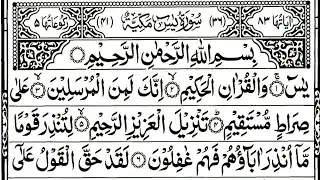 اٰیاتھا ۸۳ (۳۶) سُوْرَةُ یٰسٓ مَكِّیَّةٌ (۴۱) رکوعاتھا ۵
بِسْمِ اللّٰهِ الرَّحْمٰنِ الرَّحِیْمِ
یٰسٓ ۝۱ وَالْقُرْاٰنِ الْحَكِیْمِ ۝۲ اِنَّكَ لَمِنَ الْمُرْسَلِیْنَ ۝۳ عَلٰی
صِرَاطٍ مُّسْتَقِیْمٍ ۝۴ تَنْزِیْلَ الْعَزِیْزِ الرَّحِیْمِ ۝۵ لِتُنْذِرَ قَوْمًا
مَّاۤ اُنْذِرَ اٰبَآؤُهُمْ فَهُمْ غٰفِلُوْنَ ۝۶ لَقَدْ حَقَّ الْقَوْلُ عَلٰۤی